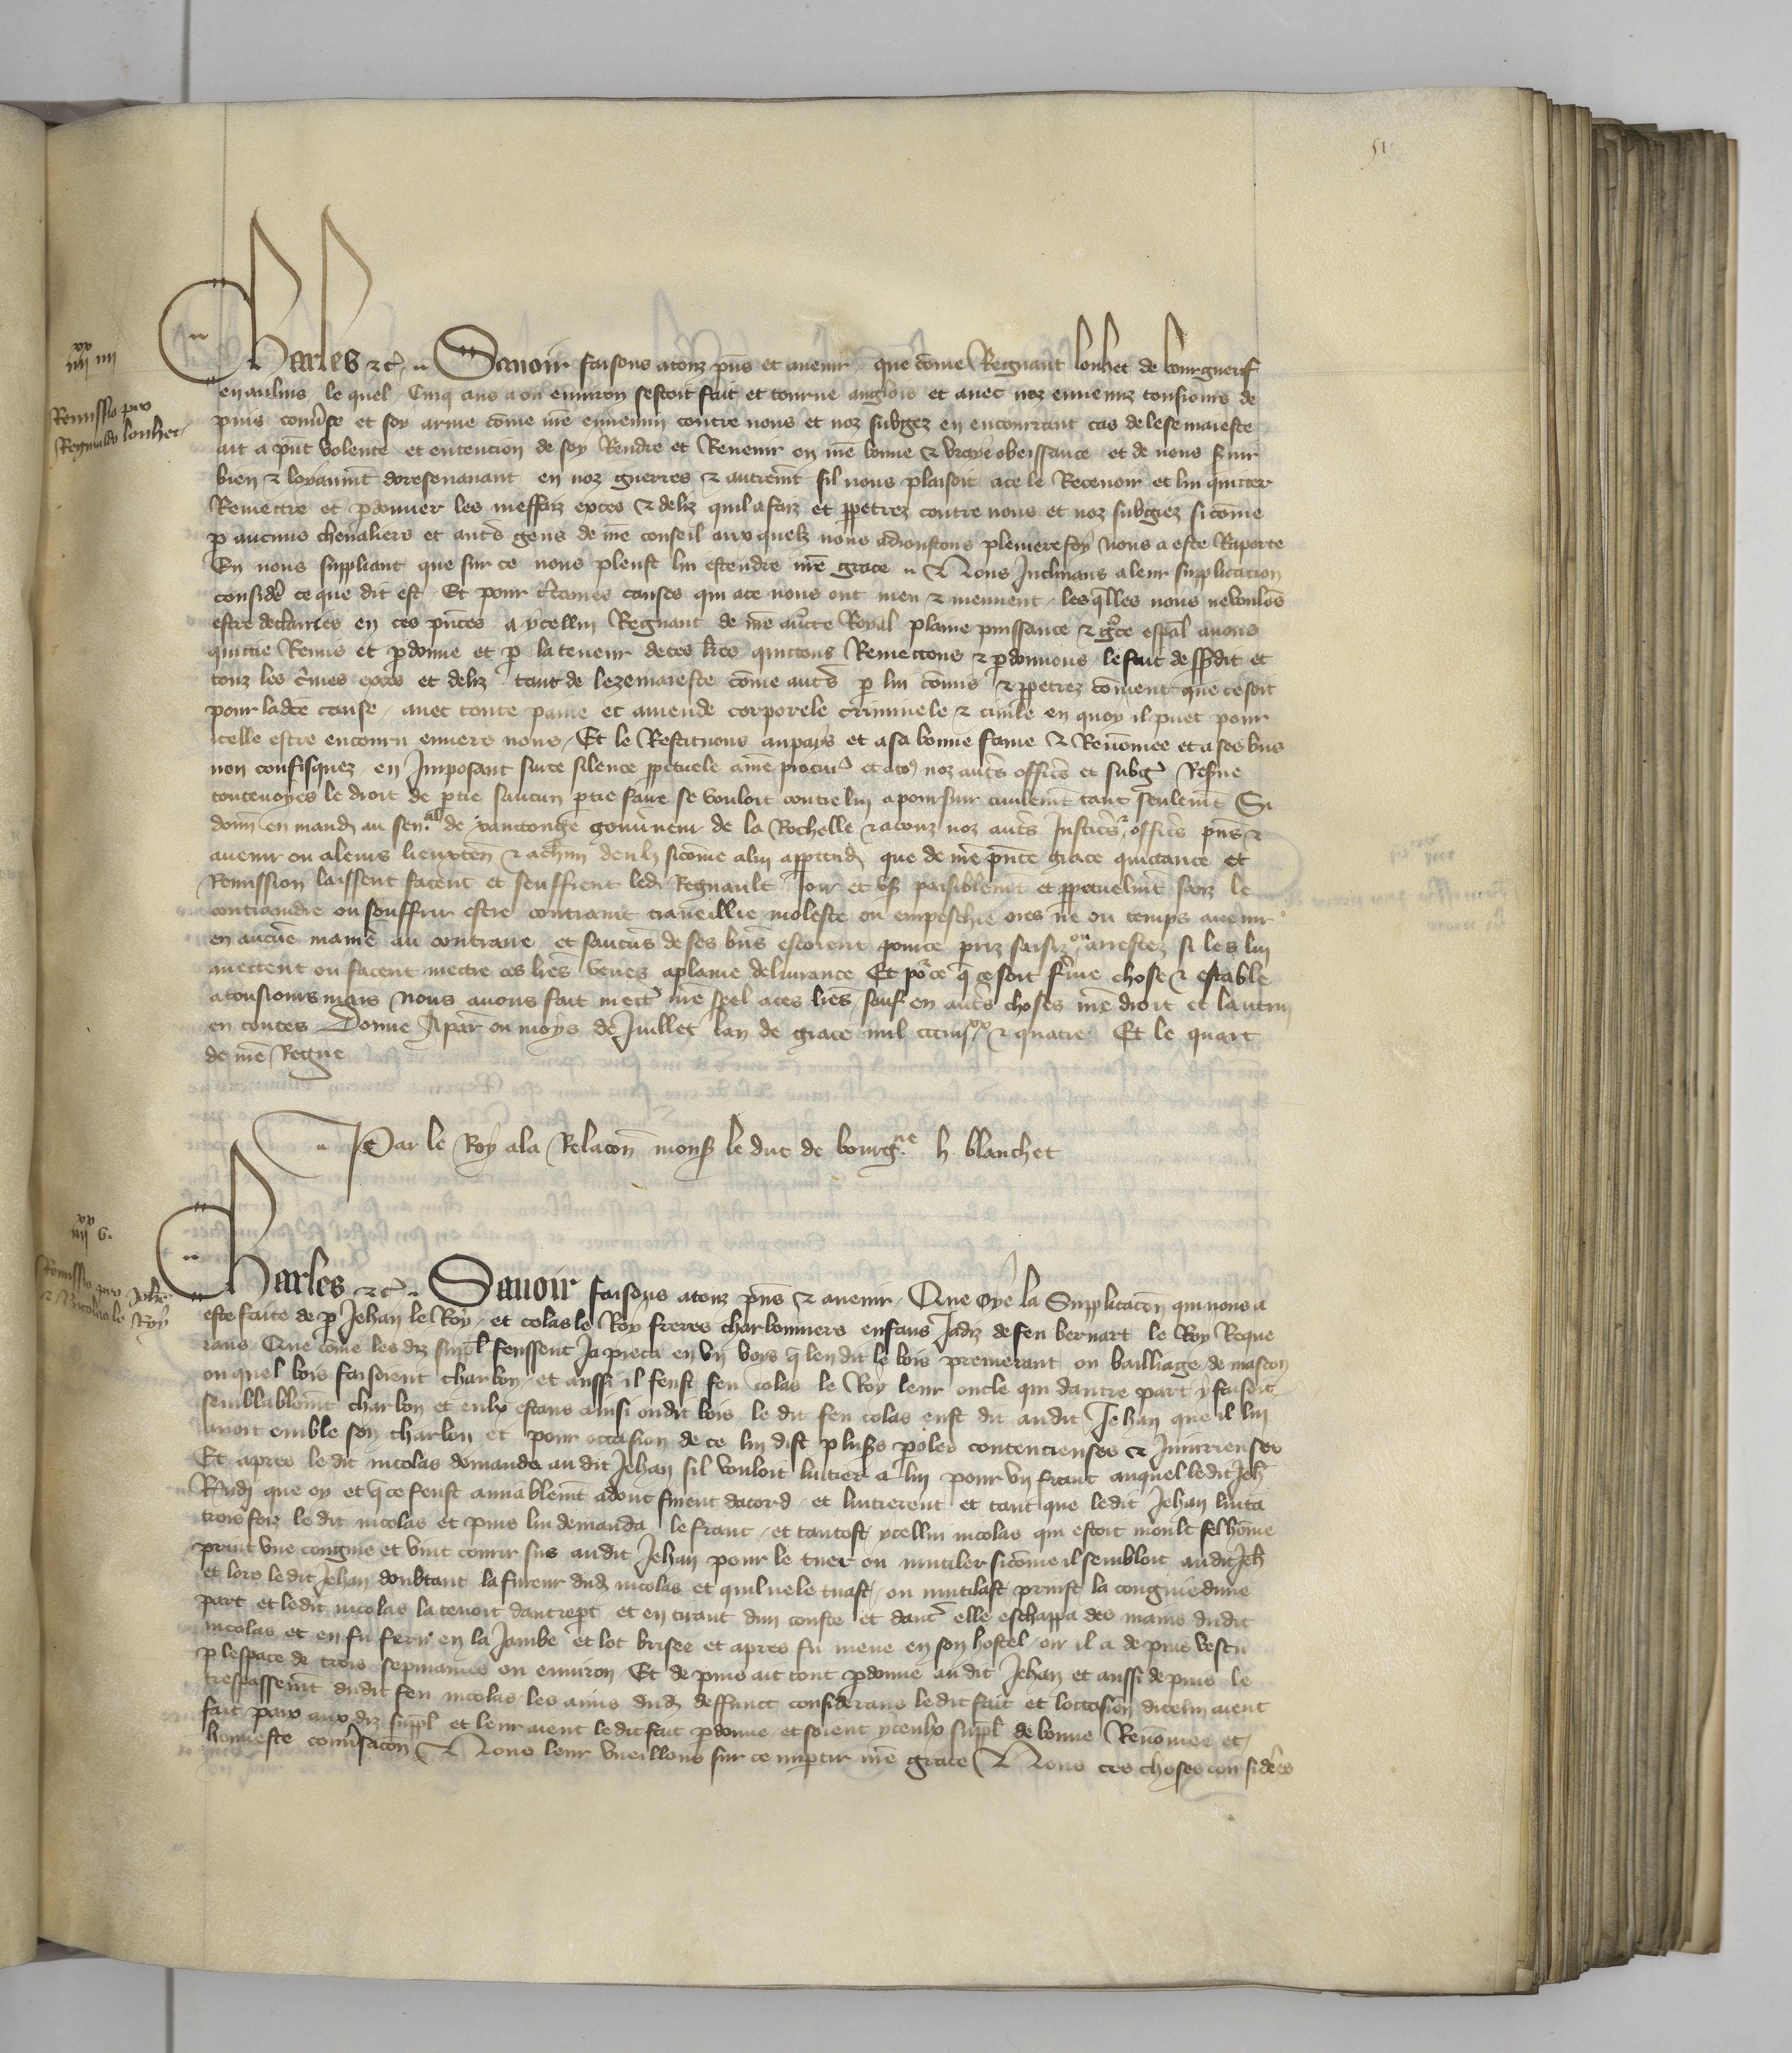 51
Charles etc. Savoir faisons a touz pns et avenir que cõme Regnaut louhet de bourgneuf
iiii xx iiii
en aulnis le quel Cinq ans a ou environ sestoit fait et tourne anglois et avec noz ennemiz tousiours de
Remissio pro
Reginaldo louhet
puis convse et soy arme cõme nre ennemi contre nous et noz subgez en encourrant cas de lese maieste
ait a pnt volente et entencion de soy Rendre et Revenir en nre bonne et vraye obeissance et de nous svir
bien et loyaumt doresenavant en noz guerres et autremt sil nous plaisoit a ce le Recevoir et lui quitter
Remettre et pdonner les meffaiz exces et deliz quil a faiz et ppetrez contre nous et noz subgiez si cõme
p aucuns chevaliers et autrs gens de nre conseil aux quelz nous adioustons pleniere foy nous a este Raporte
En nous suppliant que sur ce nous pleust lui estendre nre grace Nous Inclinans a leur supplicacion
consider ce que dit est Et pour ctaines causes qui a ce nous ont meu et meuvent les qlles nous ne voulons
estre declairies en ces pntes a ycellui Regnaut de nre aucte Royal plaine puissance et gce espal avons
quittie Remis et pdonne et p la teneur de ces lres quittons Remettons et pdonnons le fait dessusdit et
touz les crimes exces et deliz tant de leze maieste cõme autrs p lui cõmis et ppetrez cõment que ce soit
pour ladte cause avec toute paine et amende corporele criminele et civile en quoy il puet pour
icelle estre encouru envers nous Et le Restituons au pays et a sa bonne fame et Renõmee et a ses bns
non confisquez en Imposant surce silence ppetuele a nre procur et a touz noz autrs offic et subgz Resve
toutevoyes le droit de ptie saucun ptie faire se vouloit contre lui a poursuir civilemt tant seulemt Si
donns en mandt au senal de xantonge gouvneur de la Rochelle et a touz noz autrs Justicrs et officrs pns et
avenir ou a leurs lieuxten et a chun deulz si cõme a lui apptendra que de nre pnte grace quittance et
Remission laissent facent et seuffrent led Regnault Joir et usr paisiblemt et ppetuelmt sanz le
contraindre ou souffrir estre contraint traveillie moleste ou empeschie ores ne ou temps avenir
en aucune maniere au contraire et saucuns de ses bns estoient pour ce priz saisiz ou arrestez si les lui
mettent ou facent mettre ces lres veues a plaine delivrance Et pour ce q ce soit ferme chose et estable
a tousiours mais Nous avons fait mettr nre seel a ces lres sauf en autrs choses nre droit et lautrui
en toutes Donne A par ou moys de Juillet lan de grace mil ccc iiii xx et quatre Et le quart
de nre Regne
Par le Roy a la Relacon monsr le duc de bourgne h. blanchet
Charles etc. Savoir faisons a touz pns et avenir Que oye la Supplicacon qui nous a
iiii xx v.
Remissio pro Johe
et Nicolao le Roy
este faite de p Jehan le Roy et colas le Roy freres charbonniers enfans Jadiz de feu bernart le Roy Reque
rans Que cõme les diz suppl feussent Ja pieca en un boys q len dit le bois premerant ou bailliage de mascon
ou quel bois faisoient charbon et aussi il feust feu colas le Roy leur oncle qui dautre part y faisoit
semblablemt charbon et eulx estans ainsi oudit bois le dit feu colas eust dit audit Jehan que il lui
avoit emble son charbon et pour occasion de ce lui dist plusrs poles contencieuses et Iniurieuses
Et apres le dit nicolas demanda au dit Jehan sil vouloit luitier a lui pour un franc auquel ledit Jeh
Rndi que oy et q ce feust amiablemt adont furent dacord et luitierent et tant que ledit Jehan luita
trois foiz le dit nicolas et puis lui demanda le franc et tantost ycellui nicolas qui estoit moult fel hõme
print une congnie et vint courir sus audit Jehan pour le tuer ou mutiler si cõme il sembloit audit Jeh
et lors ledit Jehan doubtant la fureur dud nicolas et quil ne le tuast ou mutilast prinst la congnie dune
part et ledit nicolas la tenoit dautrept et en tirant dun couste et dautr elle eschappa des mains dudit
nicolas et en fu feru en la Jambe et lot brisee et apres fu mene en son hostel ou il a depuis vescu
p lespace de trois sepmaines ou environ Et depuis ait tout pdonne au dit Jehan et aussi depuis le
trespassemt dudit feu nicolas les amis dud deffunct considerans le dit fait et loccasion dicelui aient
fait paix aux diz suppl et leur aient le dit fait pdonne et soient yceulx suppl de bonne Renõmee et
honneste convsacon Nous leur vueillons sur ce impartir nre grace Nous ces choses considres